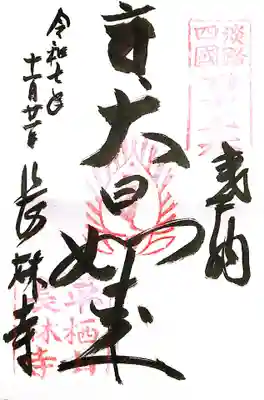 奉納
大日如来
令和七年
十一月廿一日
長林寺
淡路
四國
長林寺